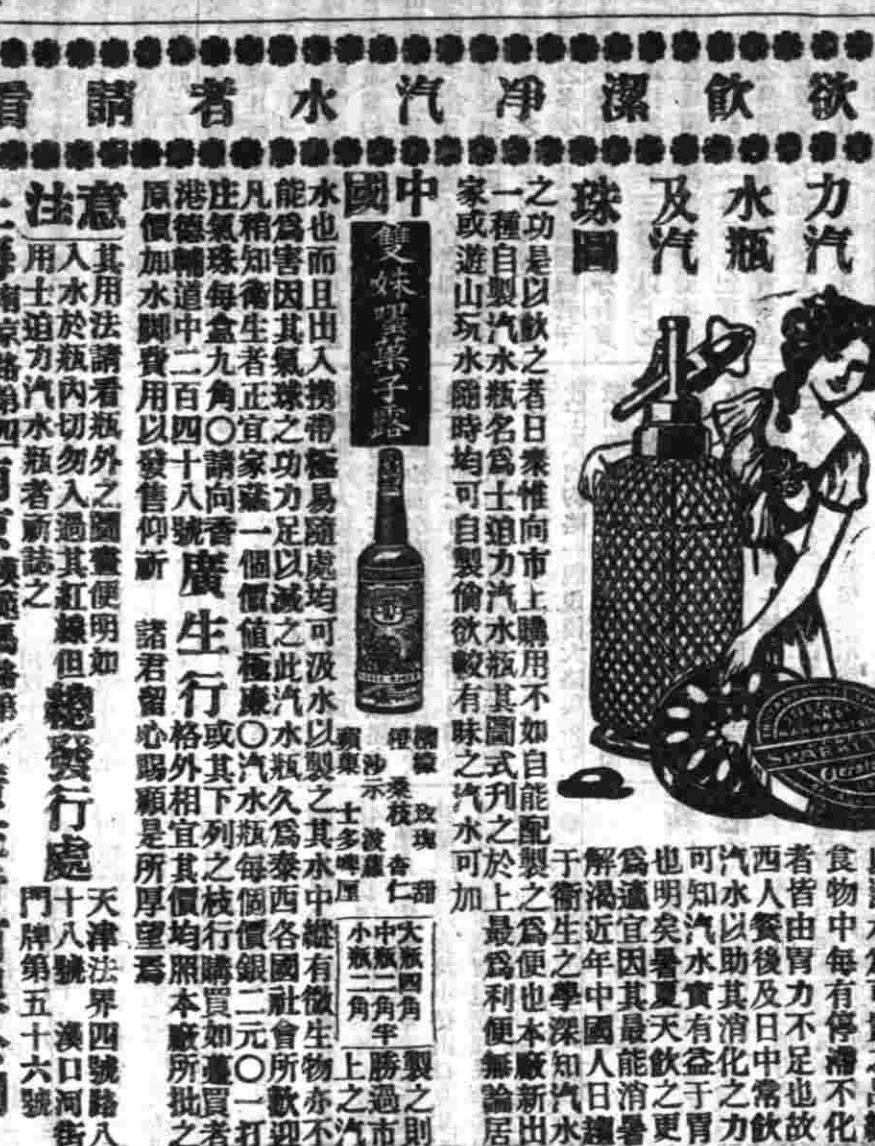 欲飲潔淨汽水者請看
力汽
水瓶
及汽
珠圖
食物中每有停滯不化
者皆由胃力不足也故
西人餐後及日中常飲
汽水以助其消化之力
可知汽水實有益于胃
也明矣暑夏天飲之更
為適宜因其最能消暑
解渴近年中國人日趨
于衛生之學深知汽水
之功是以飲之者日衆惟向市上購用不如自能配製之為便也本廠新出
一種自製汽水瓶名為士迫力汽水瓶其圖式刋之於上最為利便無論居
家或遊山玩水隨時均可自製倘欲較有味之汽水可加
中國
雙妹嚜菓子露
檸檬 玫瑰 甜
橙 桑枝 杏仁
沙示 波蘿
蘋菓 士多啤厘
大瓶四角
中瓶二角半
小瓶一角
製之則
勝過市
上之汽
水也而且出入携帶極易隨處均可汲水以製之其水中縱有微生物亦不
能為害因其氣珠之功力足以滅之此汽水瓶久為泰西各國社會所歡迎
凡稍知衛生者正宜家藏一個價值極廉〇汽水瓶每個價銀二元〇一打
庄氣珠每盒九角〇請向香
港德輔道中二百四十八號
廣生行
或其下列之枝行購買如躉買者
格外相宜其價均照本廠所批之
原價加水脚費用以發售仰祈 諸君留心賜顧是所厚望焉
注意
其用法請看瓶外之圖畫便明如
入水於瓶內切勿入過其紅線但
用士迫力汽水瓶者祈誌之
總發行處
天津法界四號路八
十八號 漢口河街
門牌第五十六號
SPARKLE